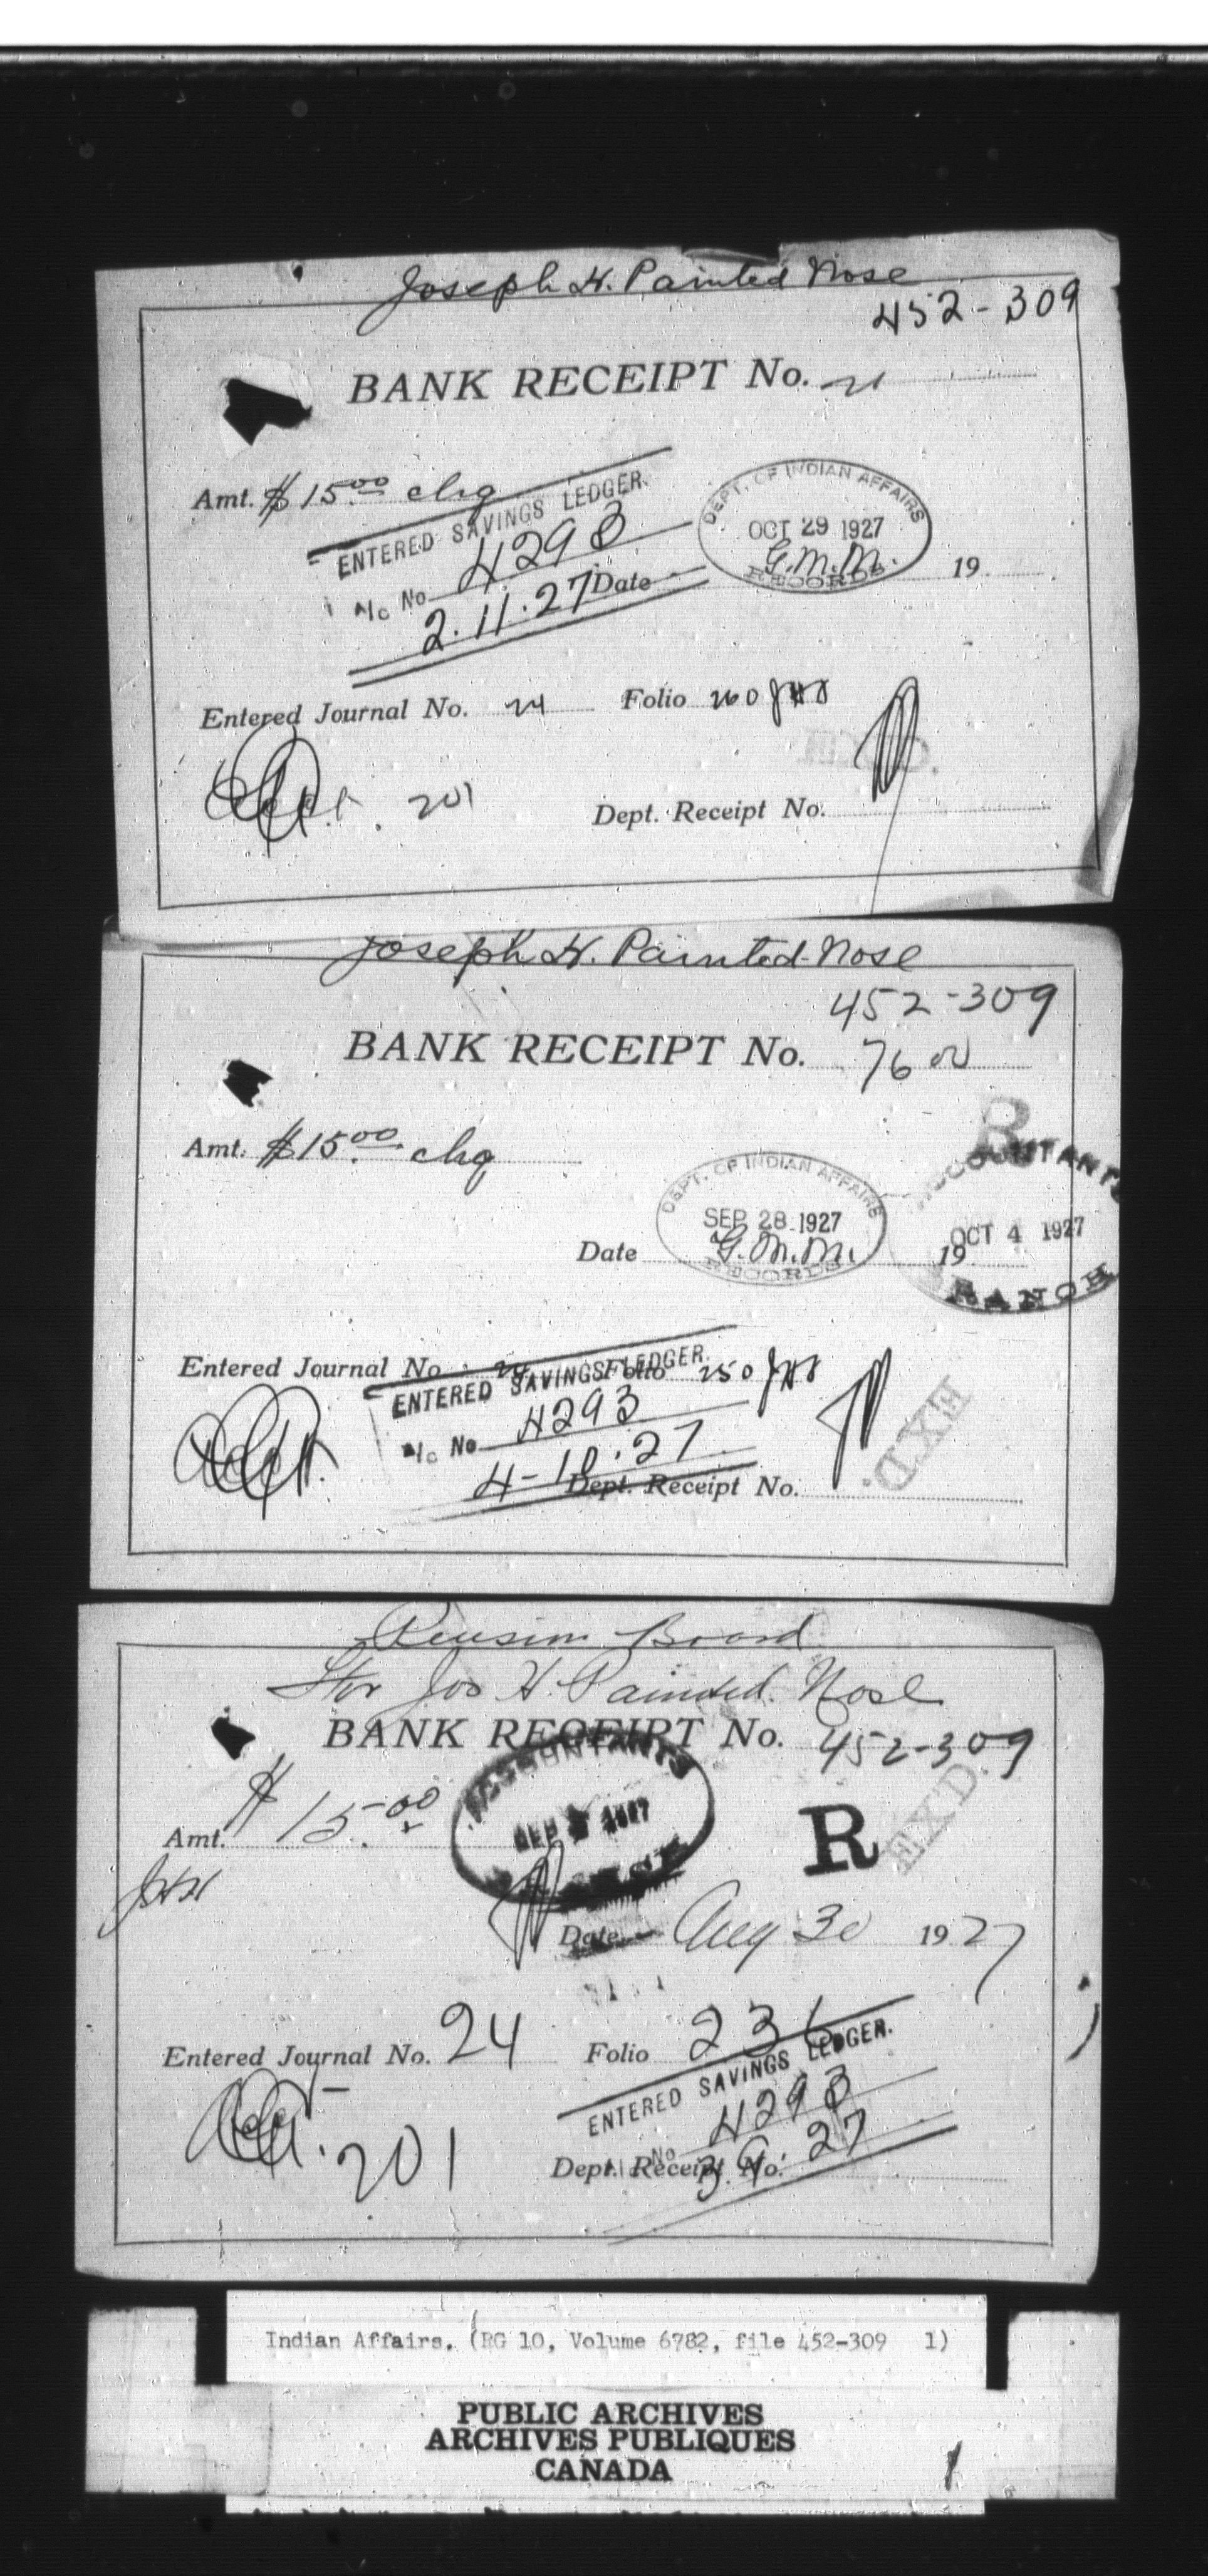 Joseph H. Painted Nose
452-309
BANK RECEIPT No. 21
Amt. $15.00 chq
ENTERED SAVINGS LEDGER.
A/c No 4293
2.11.27
DEPT. OF INDIAN AFFAIRS
OCT 29 1927
G.M.M.
RECORDS
Date 19
Entered Journal No. 24 Folio 260
201
Dept. Receipt No.
Joseph H. Painted Nose
452-309
BANK RECEIPT No. 7600
Amt. $15.00 chq
DEPT. OF INDIAN AFFAIRS
SEP 28 1927
G.M.M.
RECORDS
ACCOUNTANTS
OCT 4 1927
BRANCH
R
Date 19
Entered Journal No. 24 Folio 250
ENTERED SAVINGS LEDGER.
A/c No 4293
4-10.27
EXD.
Dept. Receipt No.
Pension Board
for Jos H. Painted Nose
BANK RECEIPT No. 452-309
Amt. $15.00
ACCOUNTANTS
R
EXD.
Date Aug 30 1927
Entered Journal No. 24 Folio
ENTERED SAVINGS LEDGER.
No 4293
3.9.27
201
Dept. Receipt No.
Indian Affairs. (RG 10, Volume 6782, file 452-309 1)
PUBLIC ARCHIVES
ARCHIVES PUBLIQUES
CANADA